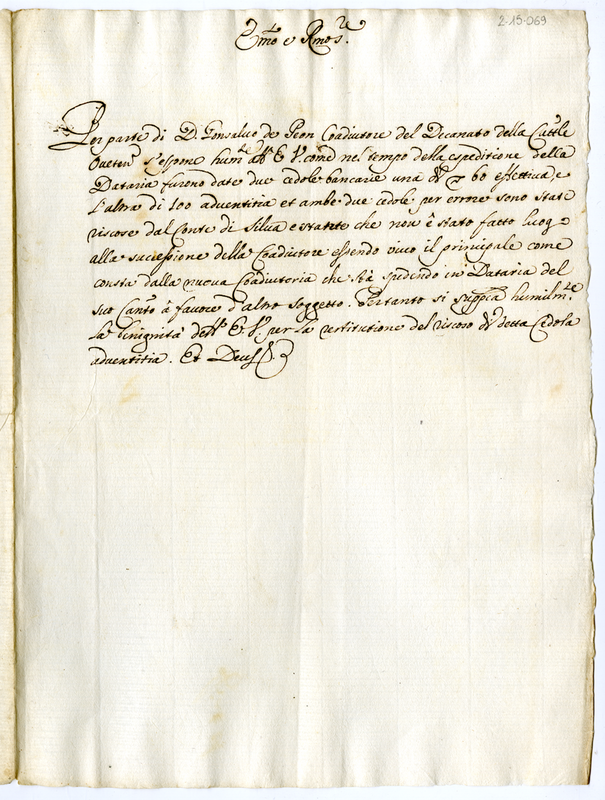 2-15-069
Emo e Rmo S.re
Per parte di D. Gonsaluo de Peon Coadiutore del Decanato della Cattle
Oueten s'espone hum.te all' E. V. come nel tempo della espeditione della
Dataria furono date due cedole bancarie una di 60 effettiva, e
l'altra di 100 aduentitia et ambe due cedole per errore sono state
riscose dal Conte di Silua e stante che non è stato fatto luogo
alla successione della Coadiutore essendo viuo il principale come
consta dalla nuova Coadiutoria che stà spedendo in Dataria del
suo Canto à favore d'altro soggetto. Pertanto si supp.ca humilm.te
la benignità dell' E. V. per la restitutione del riscoso di detta Cedola
aduentitia. Et Deus